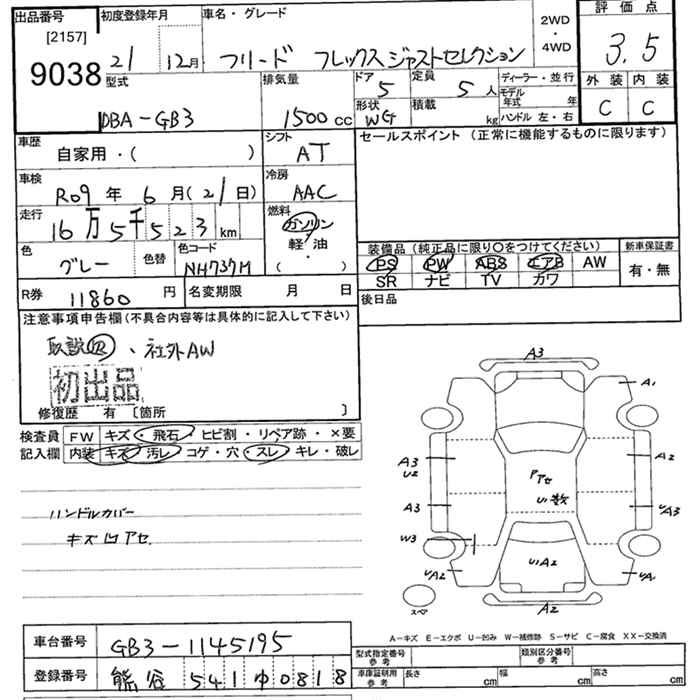 出品番号 初度登録年月 車名・グレード 2WD・4WD 評価点
[2157]
9038
21 12月 フリード フレックス ジャストセレクション 3.5
型式 排気量 ドア 定員 ディーラー・並行 外装 内装
5 5人 モデル年式 年
DBA-GB3 1500cc 形状 WG 積載 kg ハンドル 左・右 C C
車歴 シフト セールスポイント(正常に機能するものに限ります)
自家用・( ) AT
車検 冷房
R09年 6月(21日) AAC
走行 燃料
16万5千523km ガソリン
軽・油
( )
色 色替 色コード
グレー NH737M
装備品(純正品に限り○をつけてください) 新車保証書
PS PW ABS エアB AW 有・無
SR ナビ TV カワ
R券 11860円 名変期限 月 日 後日品
注意事項申告欄(不具合内容等は具体的に記入して下さい)
取説、社外AW
初出品
修復歴 有 〔箇所 〕
検査員記入欄 FW キズ・飛石・ヒビ割・リペア跡・×要
内装 キズ 汚レ コゲ・穴・スレ・キレ・破レ
ハンドルカバー
キズ凹アセ
A3
A1
A3 U2 A2
Pアセ
U1数
A3 UA3
W3
UA2 U1A2 UA1
スペア A2
A-キズ E-エクボ U-凹み W-補修跡 S-サビ C-腐食 XX-交換済
車台番号 GB3-1145195
型式指定番号 参考 類別区分番号 参考
登録番号 熊谷 541 ゆ 0818
車庫証明用 参考 長さ cm 幅 cm 高さ cm